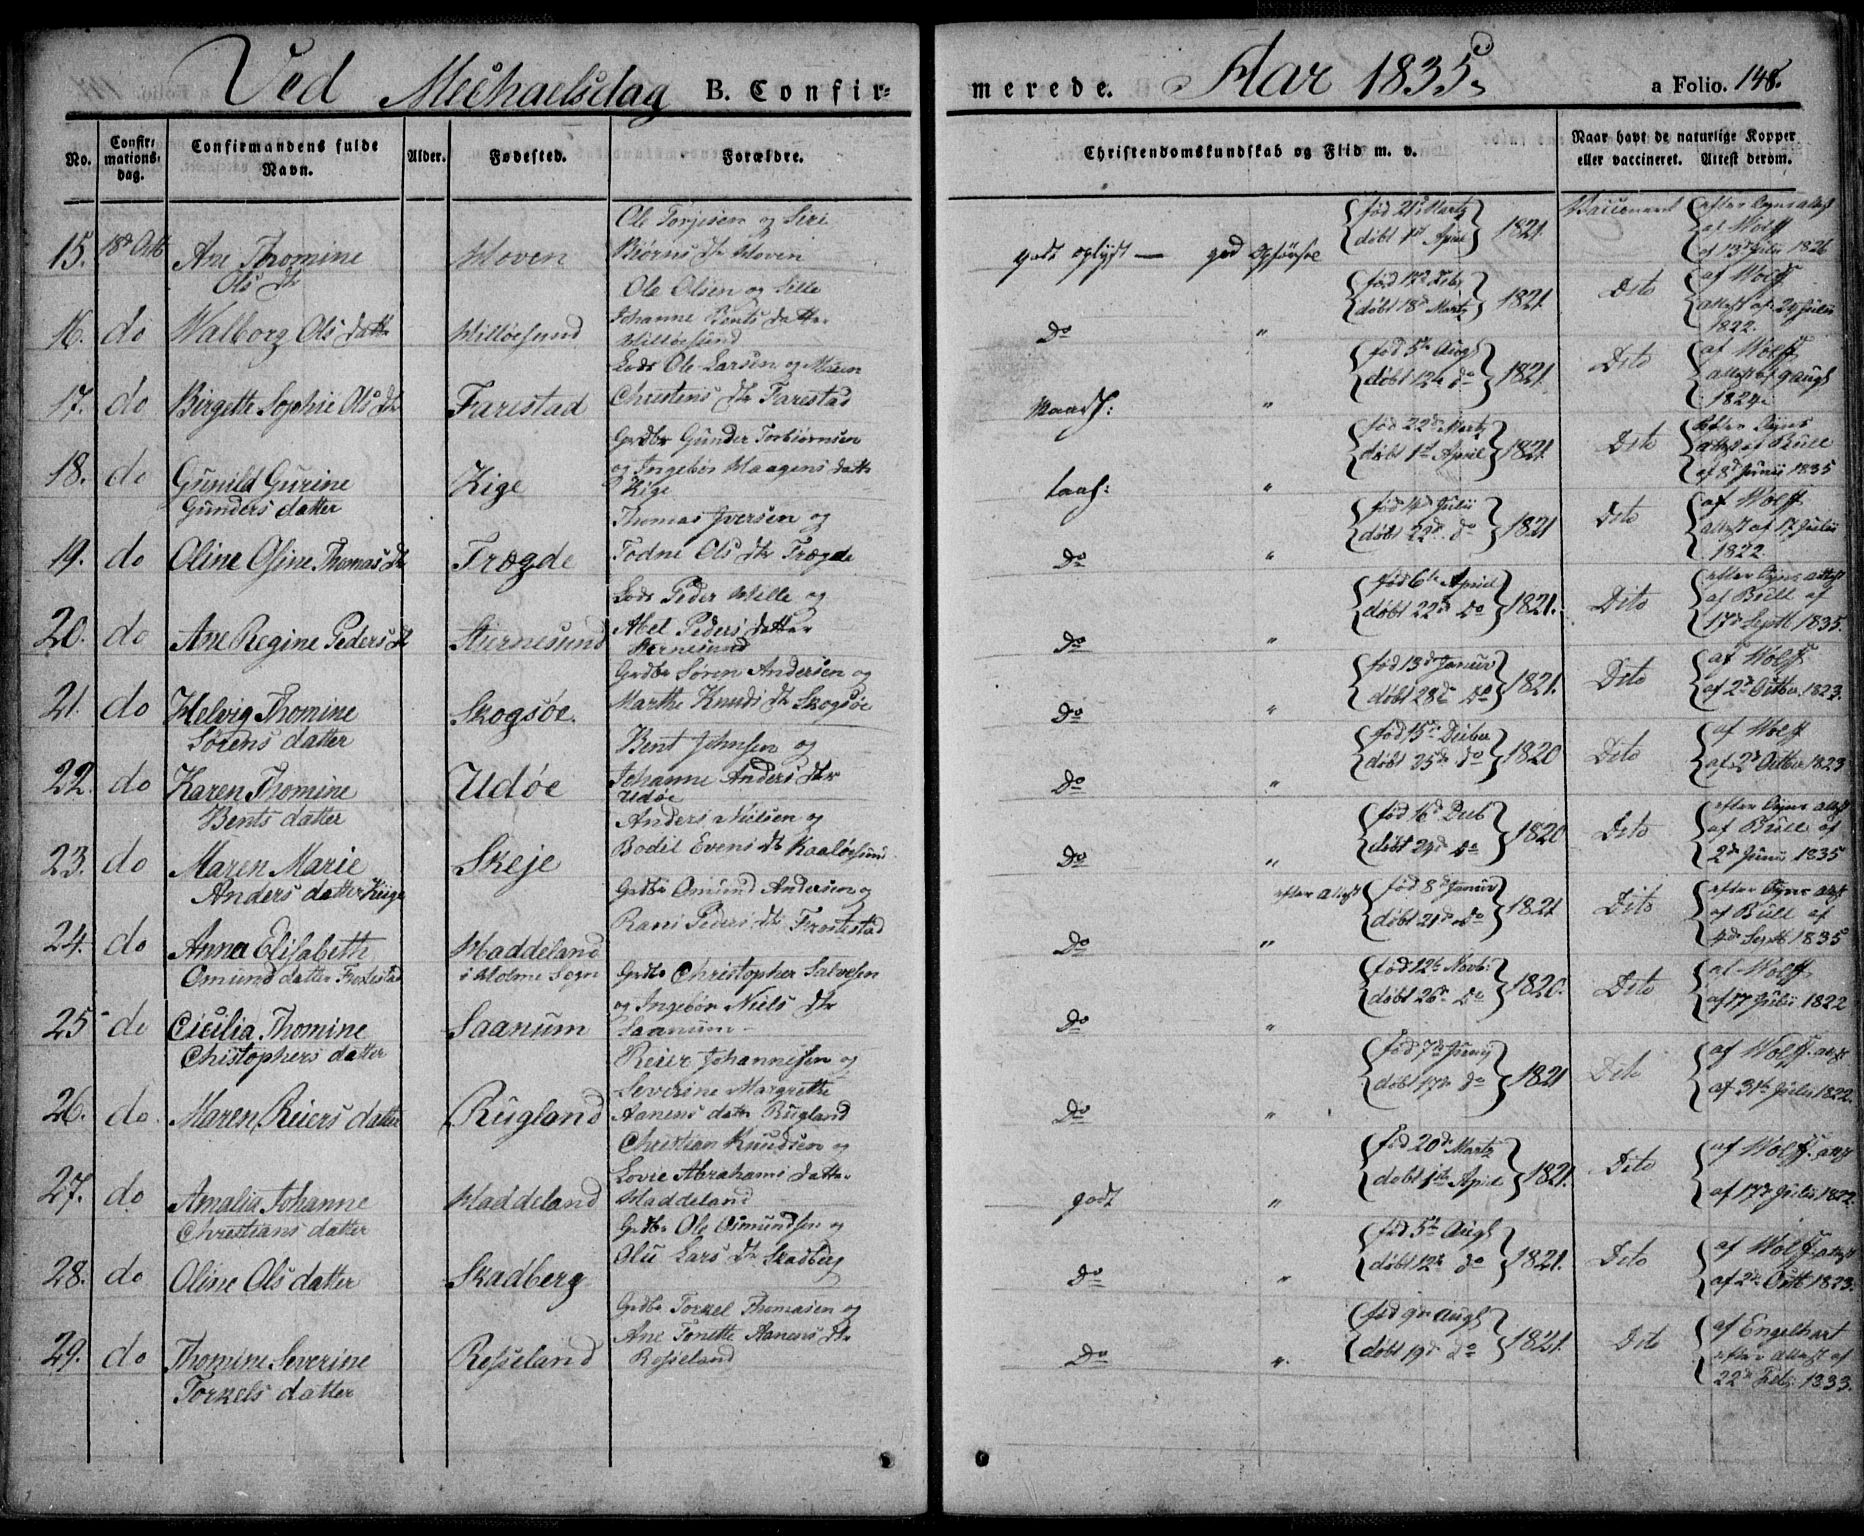 Ved Michaelsdag B. Confir-
merede. Aar 1835. a Folio. 148.
No. Confirmationsdag. Confirmandens fulde Navn. Alder. Fødested. Forældre. Christendomskundskab og Flid m. v. Naar havt de naturlige Kopper eller vaccineret. Attest derom.
15. 18d Octb Ane Thomine Ols dtr Hoven Ole Torjusen og Siri Biørns dtr Hoven godt oplyst — god Opførsel født 21d Martz døbt 1st April 1821 Vaccineret efter Syns attest af Wolff af 13d Julii 1826
16. do Walborg Ols datter Hilløesund Ole Olsen og Sille Johanne Bents datter Hilløesund Do " fød 12d Febr døbt 18d Martz 1821 Dito af Wolff attest af 20 Julii 1822.
17. do Birgette Sophie Ols dtr Farestad Lods Ole Larsen og Maren Christens dtr Farestad " fød 5te Augst døbt 12te do 1821 Dito af Wolff attest af 9 Augst 1824.
18. do Gunild Gurine Gunders datter Kige Grdbr Gunder Torbiørnsen og Ingebor Haagens datter Kige " fød 22d Martz døbt 1st April 1821 Dito efter Syns attest af Bull af 8d Junii 1835
19. do Oline Osine Thomas dtr Trægde Thomas Iversen og Todne Ols dtr Trægde Do " fød 14d Julii døbt 22d do 1821 Dito af Wolff attest af 17 Julii 1822.
20. do Ane Regine Peders dtr Stiernesund Lods Peder Hille og Abel Peders datter Stiernesund Do " fød 6te April døbt 22d Do 1821. Dito efter Syns attest af Bull af 17d Septb 1835.
21. do Helvig Thomine Sørens datter Skogsøe. Grdbr Søren Andersen og Marthe Knuds dtr Skogsøe Do " fød 13d Januar døbt 28de Do 1821. Dito af Wolff af 2d Octber 1823.
22. do Karen Thomine Bents datter Udøe Bent Johnsen og Johanne Anders dtr Udøe Do " fød 15d Decbr døbt 25de do 1820 Dito af Wolff af 2d Octber 1823
23. do Maren Marie Anders datter Kige Skeje Anders Nielsen og Bodil Evens dtr Kaaløesund Do " fød 16d Decb døbt 24d Do 1820 Dito efter Syns attest af Bull af 2d Junii 1835
24. do Anna Elisabeth Omund datter Frostestad Haddeland i Holme Sogn Grdbr Omund Andersen og Rani Peders dtr Frostestad Do " efter attest fød 8d Januar døbt 21d Do 1821 Dito efter Syns attest af Bull af 4d Septb 1835
25 do Cicilia Thomine Christophers datter Saanum Grdbr Christopher Salvesen og Ingebor Niels dtr Saanum Do " fød 12te Novb: døbt 26d Do 1820. Dito af Wolff af 17 Julii 1822
26. do. Maren Reiers datter Rugland Reier Johannesen og Severine Margrethe Aanens datr Rugland Do " fød 7de Junii døbt 17de do 1821 Dito af Wolff attst af 31te Julii 1822.
27. do Amalia Johanne Christians datter Haddeland Christian Knudsen og Lovie Abrahams datter Haddeland godt " fød 20d Martz døbt 1ste April 1821. Dito af Wolff attst af 17d Julii 1822
28. do Oline Ols datter Skadberg Grdbr Ole Osmundsen og Olu Lars dtr Skadberg Do " fød 5te Augst døbt 12te do 1821. Dito af Wolff attest af 2d Octb 1823.
29. do Thomine Severine Torkels datter Rosseland Grdbr Torkel Thomasen og Ane Tonette Aanens dtr Rosseland Do " fød 9de Augst døbt 19d do 1821. Dito af Engelhart efter attest af 22d Feb: 1833.